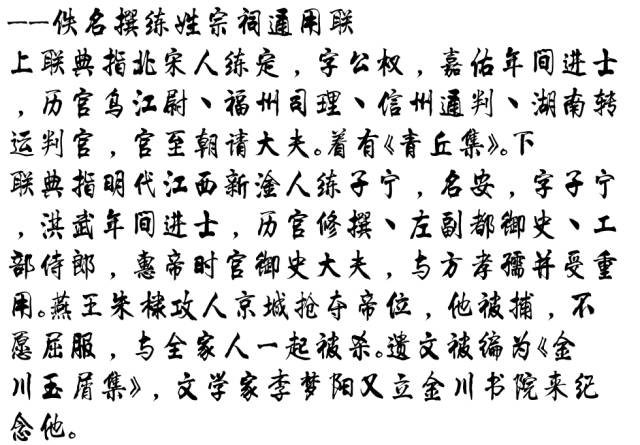 ——佚名撰练姓宗祠通用联
上联典指北宋人练定，字公权，嘉佑年间进士
，历官乌江尉、福州司理、信州通判、湖南转
运判官，官至朝请大夫。着有《青丘集》。下
联典指明代江西新淦人练子宁，名安，字子宁
，洪武年间进士，历官修撰、左副都御史、工
部侍郎，惠帝时官御史大夫，与方孝孺并受重
用。燕王朱棣攻入京城抢夺帝位，他被捕，不
愿屈服，与全家人一起被杀。遗文被编为《金
川玉屑集》，文学家李梦阳又立金川书院来纪
念他。